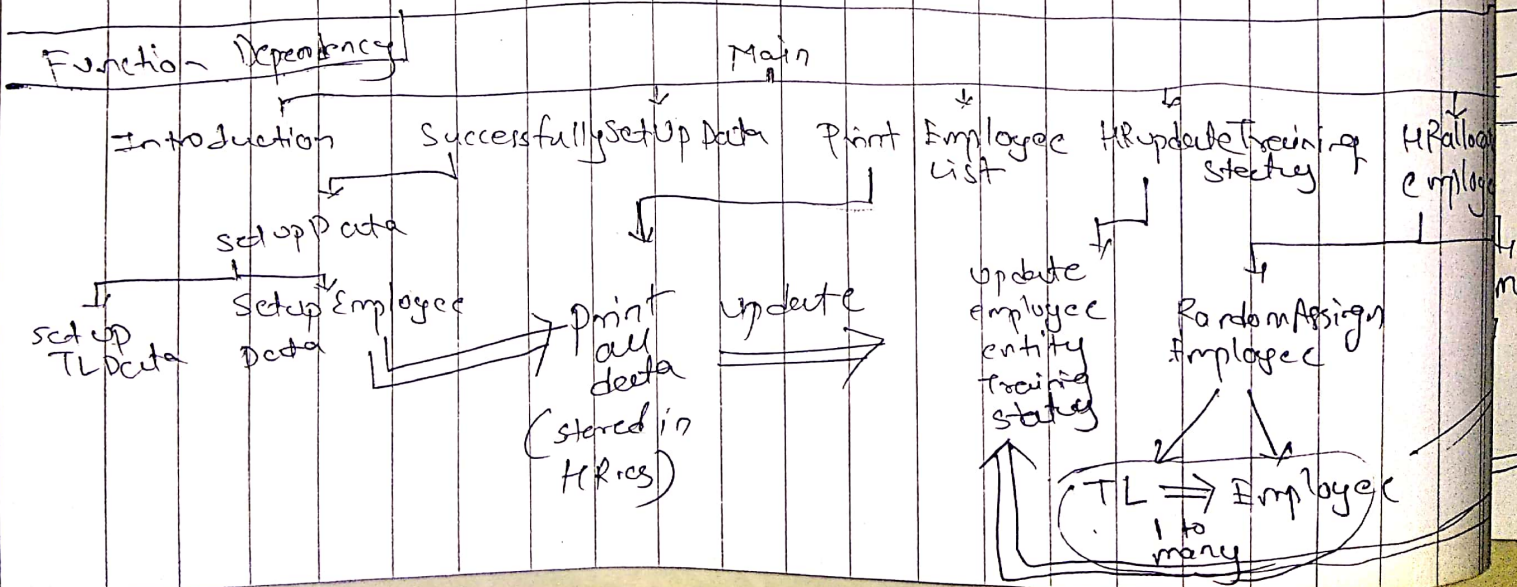 Function Dependency
Main
Introduction
SuccessfullySetUpData
Print Employee
List
HRupdateTraining
Status
HRalloca
employe
setupData
setup
TLData
Setup Employee
Data
print
all
data
(stored in
HR.cs)
update
update
employee
entity
training
status
RandomAssign
Employee
TL ⇒ Employee
1 to
many